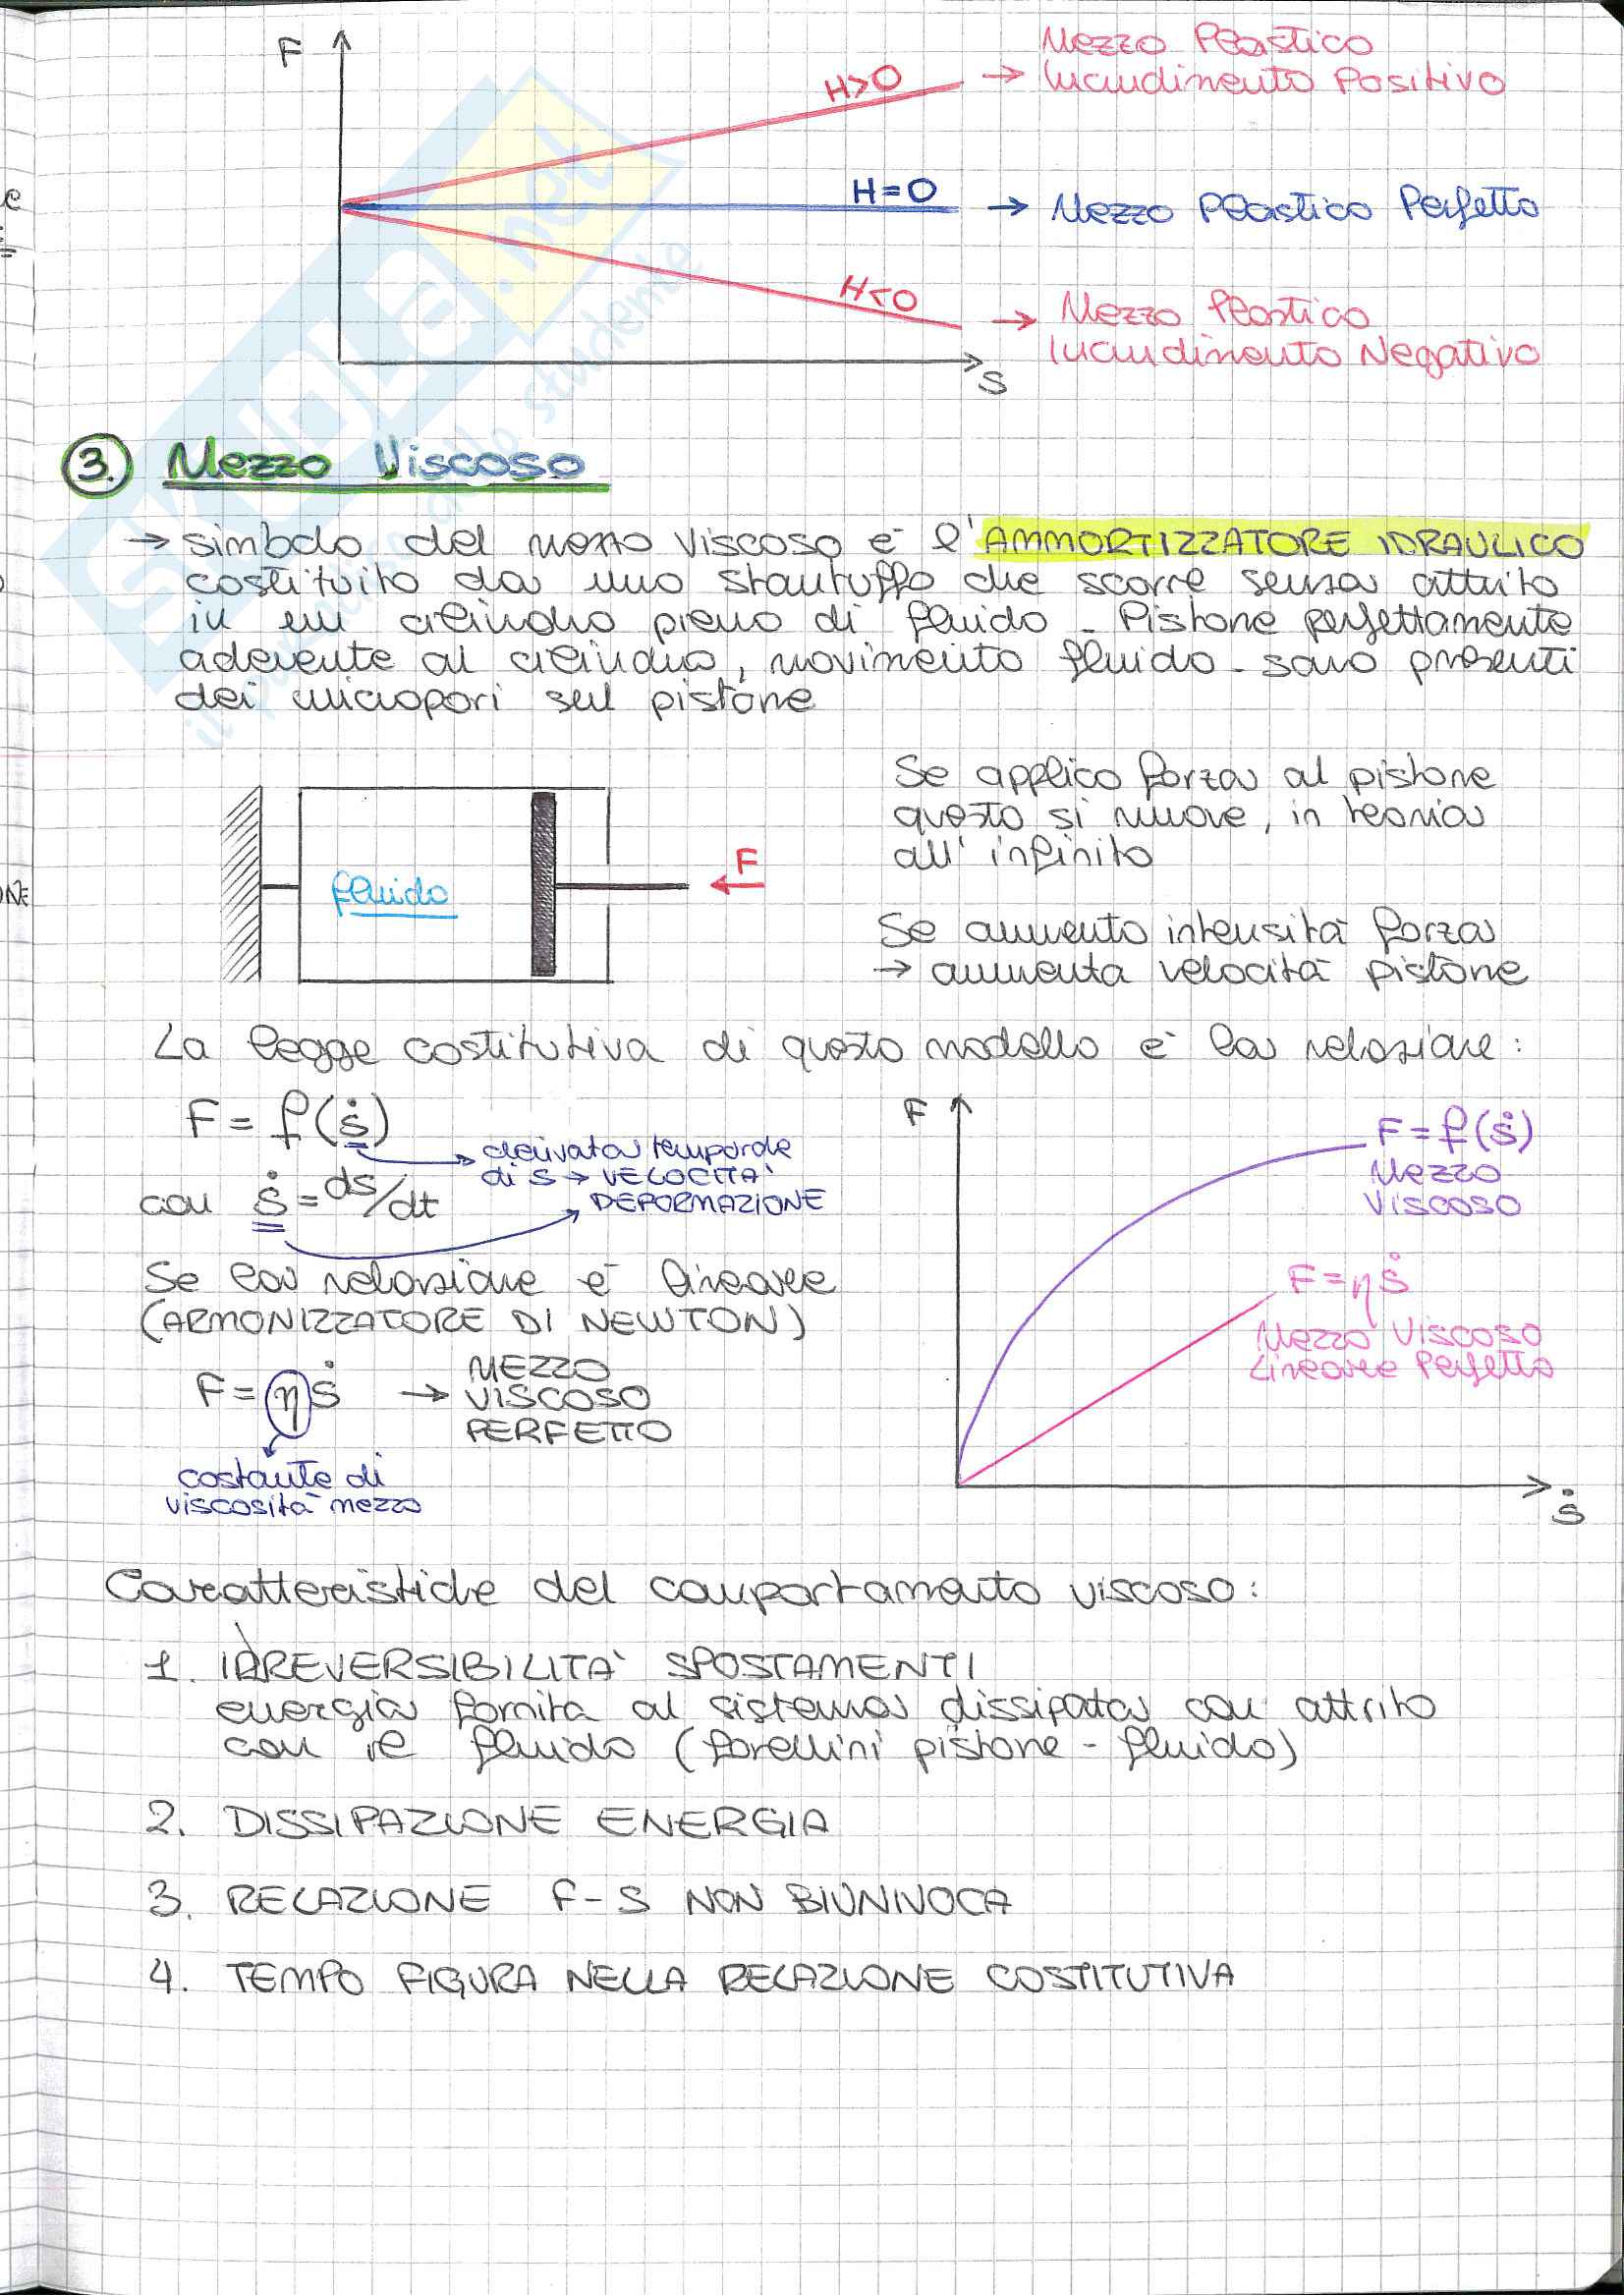 F
H>0
Mezzo Plastico
→ Incrudimento Positivo
H=0
→ Mezzo Plastico Perfetto
H<0
→ Mezzo Plastico
Incrudimento Negativo
S
3. Mezzo Viscoso
→ simbolo del mezzo viscoso è l'AMMORTIZZATORE IDRAULICO
costituito da uno stantuffo che scorre senza attrito
in un cilindro pieno di fluido - Pistone perfettamente
aderente al cilindro, movimento fluido - sono presenti
dei micropori sul pistone
fluido
F
Se applico forza al pistone
questo si muove, in teoria
all'infinito
Se aumento intensità forza
→ aumenta velocità pistone
La legge costitutiva di questo modello è la relazione:
F = f(ṡ)
derivata temporale
di s → VELOCITA'
DEFORMAZIONE
con ṡ = ds/dt
Se la relazione è lineare
(ARMONIZZATORE DI NEWTON)
F = ηṡ → MEZZO
VISCOSO
PERFETTO
costante di
viscosità mezzo
F
F = f(ṡ)
Mezzo
Viscoso
F = ηṡ
Mezzo Viscoso
Lineare Perfetto
ṡ
Caratteristiche del comportamento viscoso:
1. IRREVERSIBILITA' SPOSTAMENTI
energia fornita al sistema dissipata con attrito
con il fluido (forellini pistone - fluido)
2. DISSIPAZIONE ENERGIA
3. RELAZIONE F-S NON BIUNIVOCA
4. TEMPO FIGURA NELLA RELAZIONE COSTITUTIVA